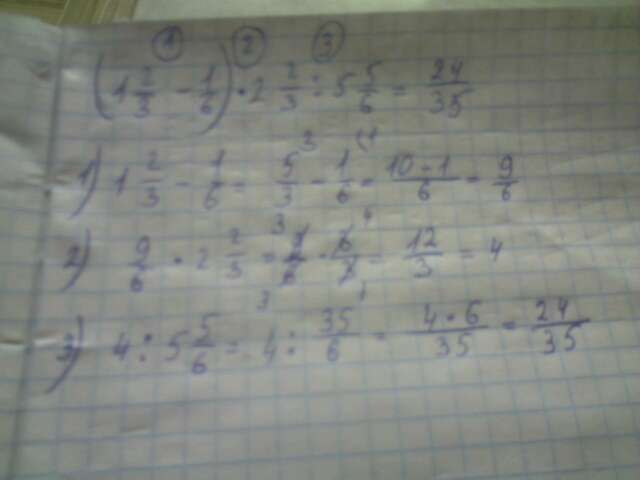 ① ② ③
(1 2/3 - 1/6) · 2 2/3 : 5 5/6 = 24/35
1) 1 2/3 - 1/6 = 5/3 - 1/6 = 10-1/6 = 9/6
2) 9/6 · 2 2/3 = 9/6 · 8/3 = 12/3 = 4
3) 4 : 5 5/6 = 4 : 35/6 = 4·6/35 = 24/35